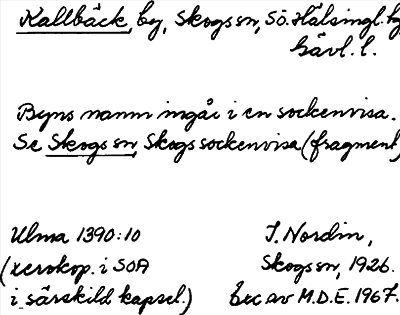 Kallbäck, by, Skogs sn, Sö. Hälsingl.
Gävl. l.
Byns namn ingår i en sockenvisa.
Se Skogs sn, Skogs sockenvisa (fragment)
Ulma 1390:10
(xerokop. i SOA
i särskild kapsel.)
J. Nordin,
Skogs sn, 1926.
Exc av M.D.E. 1967.